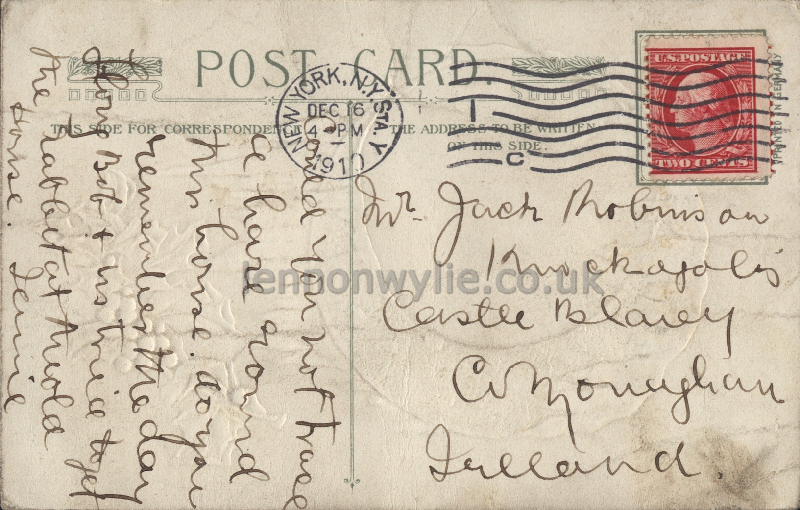 POST CARD
THIS SIDE FOR CORRESPONDENCE
THE ADDRESS TO BE WRITTEN
ON THIS SIDE.
NEW YORK, N.Y. STA. Y
DEC 16
4 PM
1910
1
C
U.S. POSTAGE
TWO CENTS
PRINTED IN GERMANY
Mr Jack Robinson
Castle Blaney
Co Monaghan
Ireland.
could you not trace
a hare round
this house. do you
remember the day
Bob + us tried to get
the rabbit at the old
House. Jennie
lennonwylie.co.uk